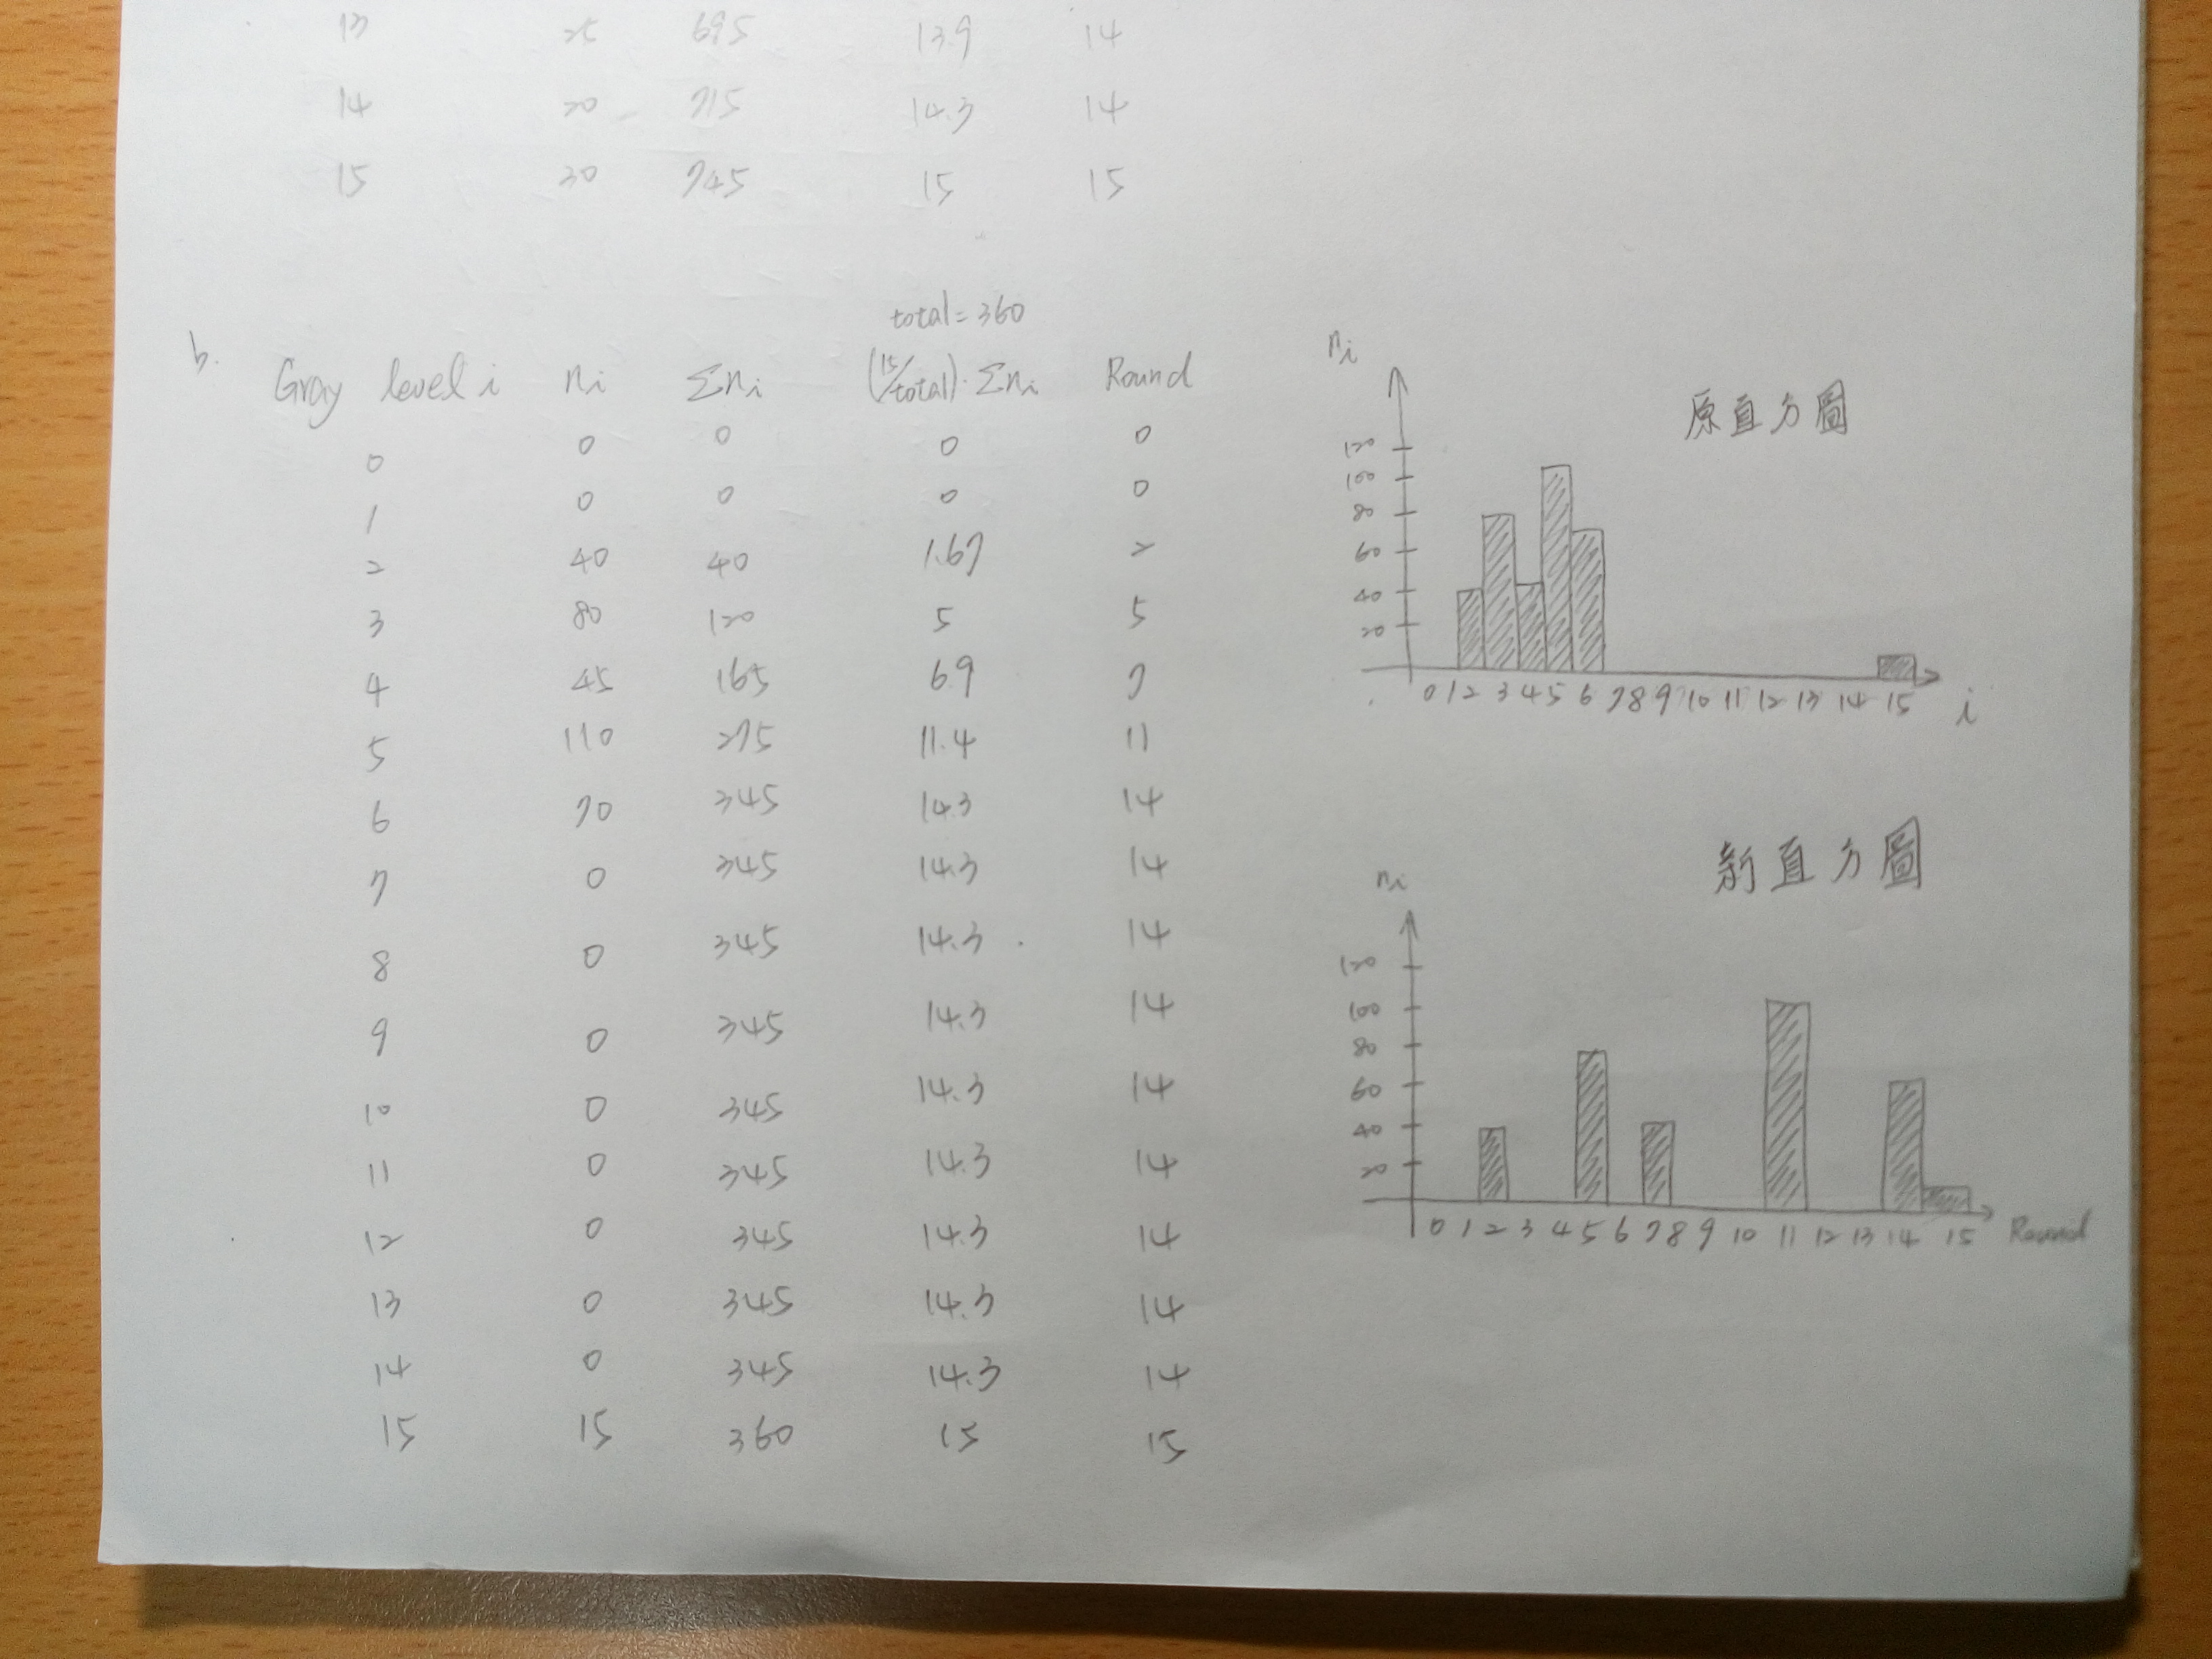 13 25 695 13.9 14
14 20 715 14.3 14
15 30 745 15 15
total = 360
b.
Gray level i ni Σni (15/total)·Σni Round
0 0 0 0 0
1 0 0 0 0
2 40 40 1.67 2
3 80 120 5 5
4 45 165 6.9 7
5 110 275 11.4 11
6 70 345 14.3 14
7 0 345 14.3 14
8 0 345 14.3 14
9 0 345 14.3 14
10 0 345 14.3 14
11 0 345 14.3 14
12 0 345 14.3 14
13 0 345 14.3 14
14 0 345 14.3 14
15 15 360 15 15
ni
原直方圖
120
100
80
60
40
20
0 1 2 3 4 5 6 7 8 9 10 11 12 13 14 15 i
新直方圖
ni
120
100
80
60
40
20
0 1 2 3 4 5 6 7 8 9 10 11 12 13 14 15 Round